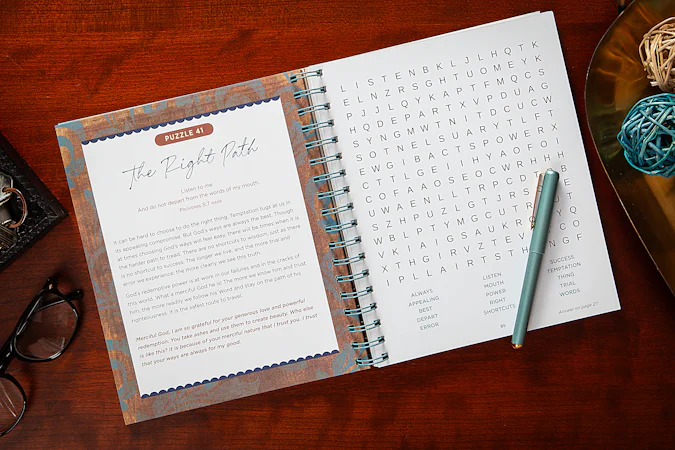 PUZZLE 41
The Right Path
Listen to me
And do not depart from the words of my mouth.
Proverbs 5:7
It can be hard to choose to do the right thing. Temptation tugs at us in
its appealing compromise. But God's ways are always the best. Though
at times choosing God's ways will feel easy, there will be times when it is
the harder path to tread. There are no shortcuts to wisdom, just as there
is no shortcut to success. The longer we live, and the more trial and
error we experience, the more clearly we see this truth.
God's redemptive power is at work in our failures and in the cracks of
this world. What a merciful God he is! The more we know him and trust
him, the more readily we follow his Word and stay on the path of his
righteousness. It is the safest route to travel.
Merciful God, I am so grateful for your generous love and powerful
redemption. You take ashes and use them to create beauty. Who else
is like this? It is because of your merciful nature that I trust you. I trust
that your ways are always for my good.
L I S T E N B K L J L H Q T K
E L N Z R S G H T U O M E Y K
P J J L Q Y K A P T F M Q C S
H Q D E P A R T X V P D U A G
S Y N G M W T N I T D C U C W
S O T N E L S U A R Y T L F T
E W G I B A C T S P O W E R X
C T T L G E I I H Y A O F O I
C O F A A O S E O C W R H H
U W A E N L L T R P C D
S Z H P U Z L G T J R S
W B L P T Y M G C U T R
V K L A I G S A U K R
X T H G I R V Z T E V
I P L L A I R T S T H N G F
ALWAYS
APPEALING
BEST
DEPART
ERROR
LISTEN
MOUTH
POWER
RIGHT
SHORTCUTS
SUCCESS
TEMPTATION
THING
TRIAL
WORDS
Answer on page